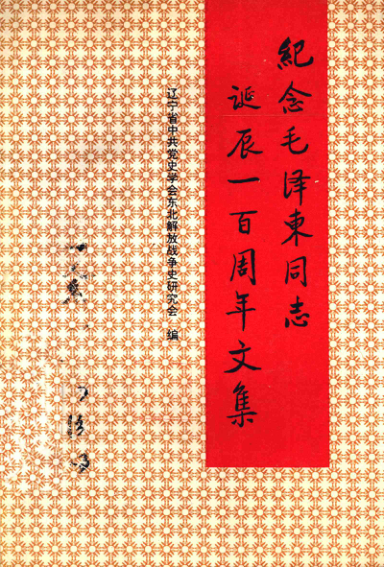 紀念毛泽東同志
诞辰一百周年文集
辽宁省中共党史学会东北解放战争史研究会 编